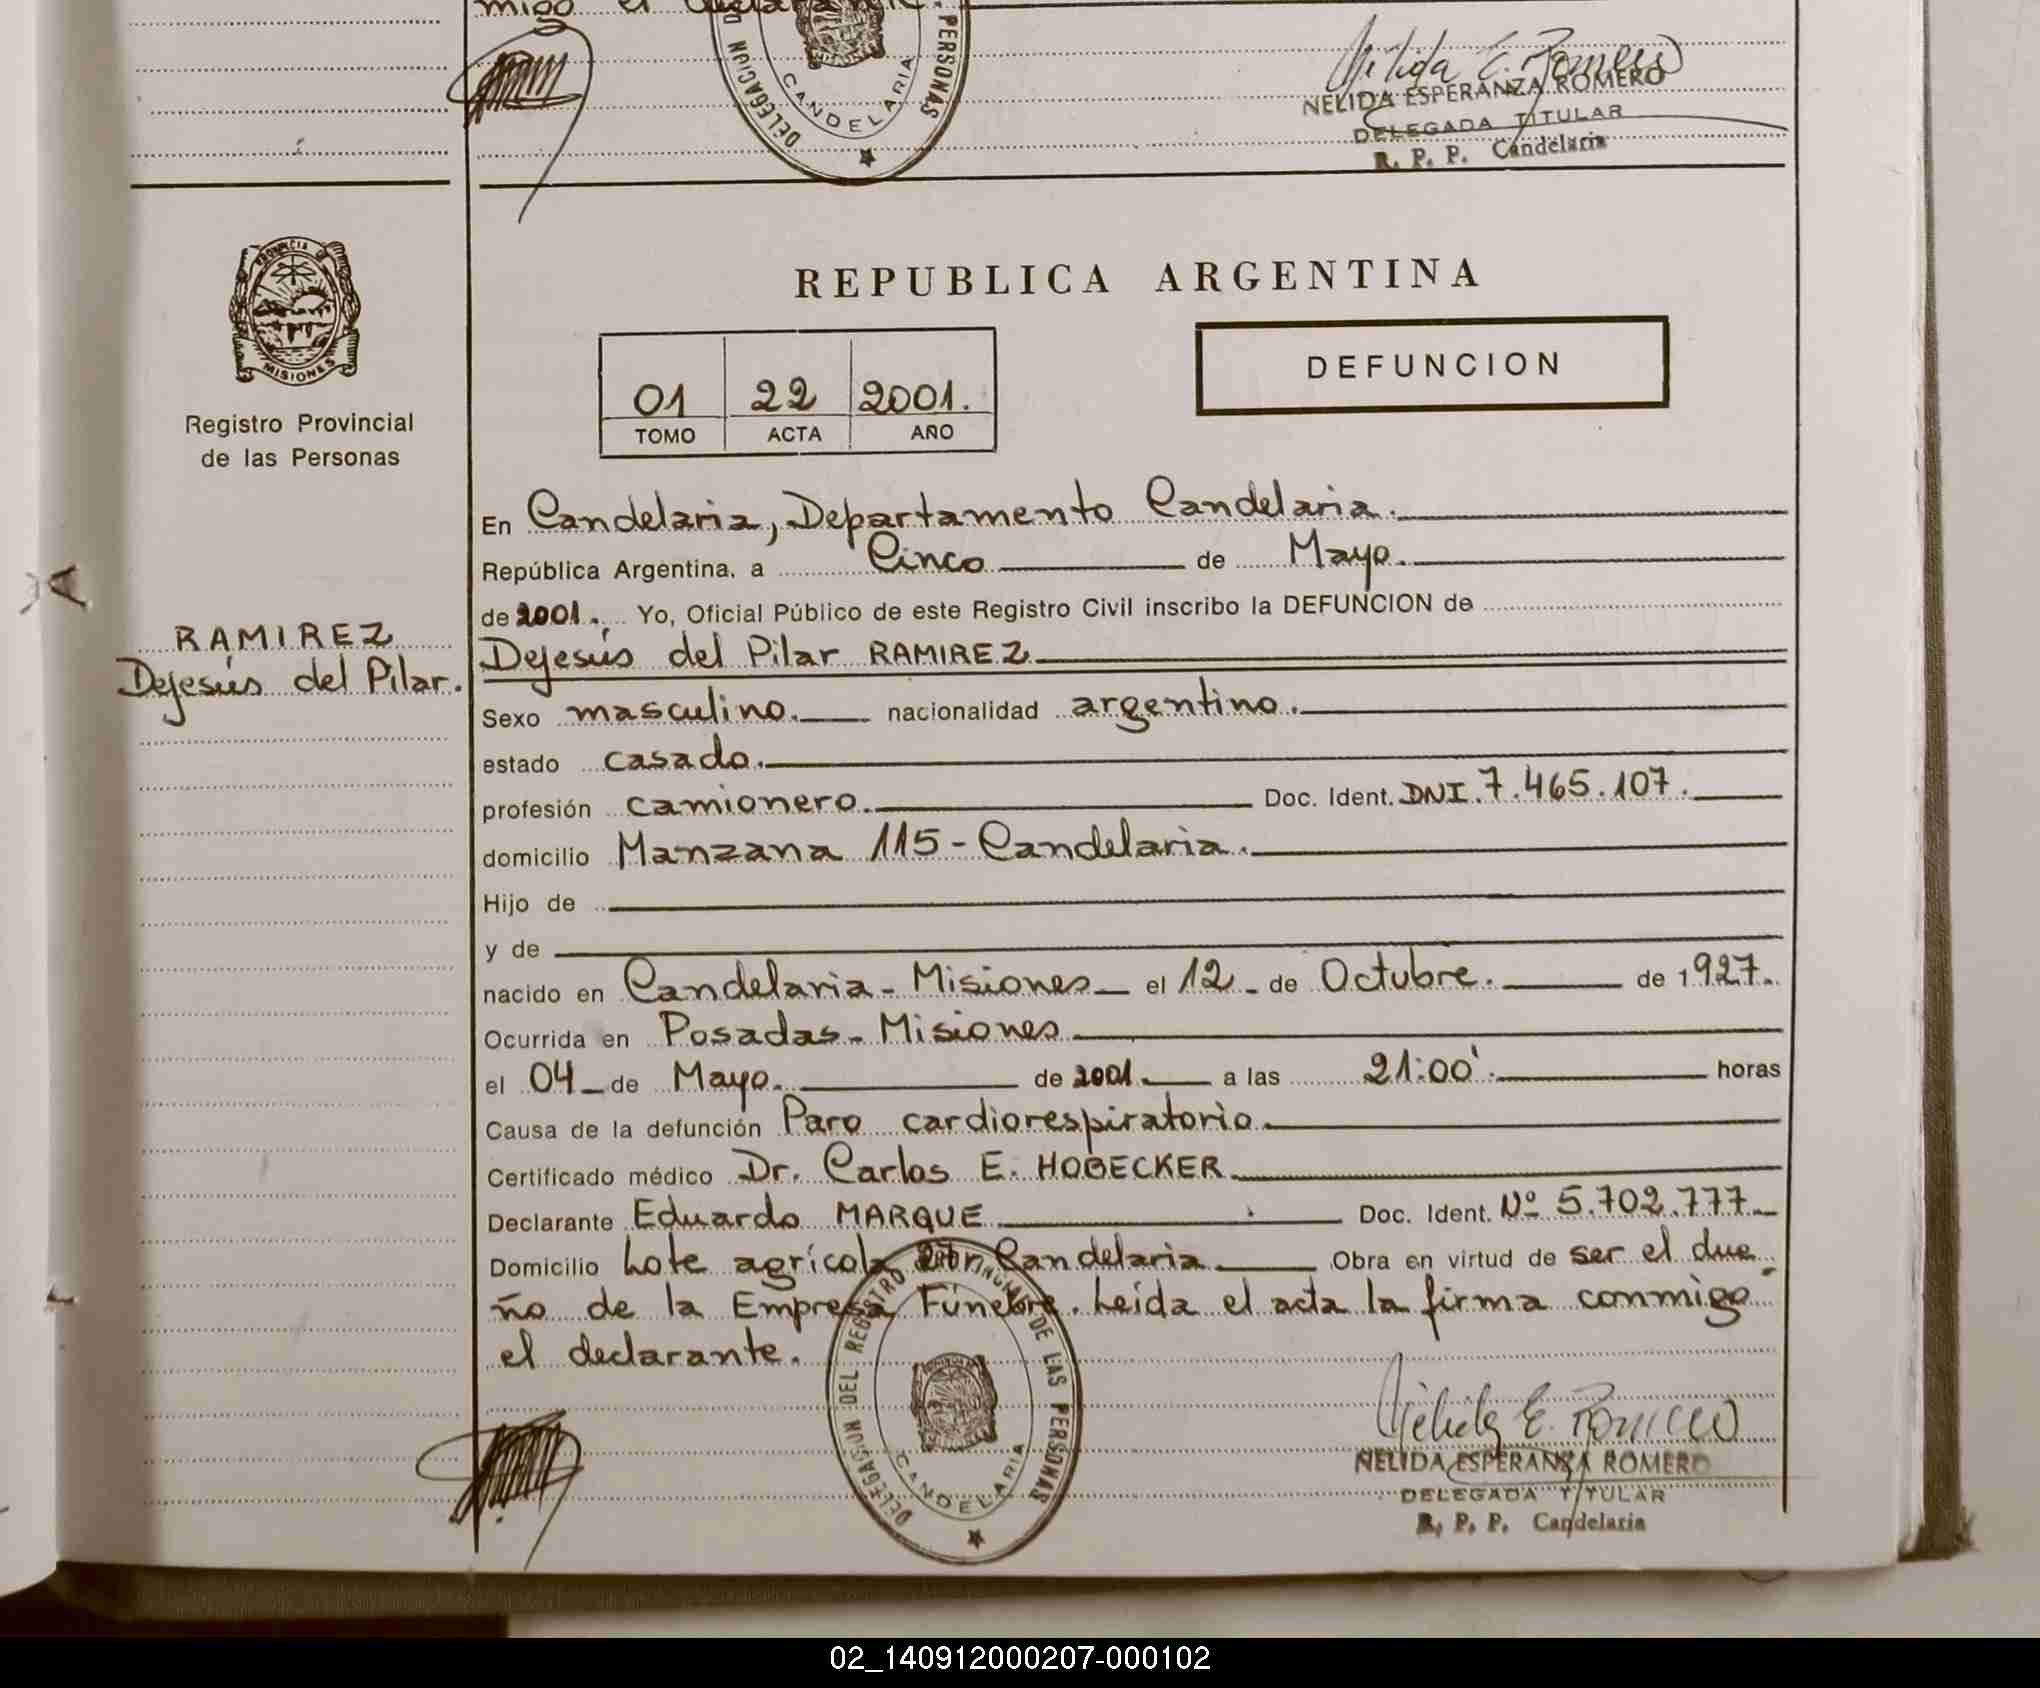 migo el declarante.
DELEGACION
PERSONAS
CANDELARIA
Nélida E. Romero
NELIDA ESPERANZA ROMERO
DELEGADA TITULAR
R. P. P. Candelaria
PROVINCIA DE
MISIONES
Registro Provincial
de las Personas
RAMIREZ
Dejesús del Pilar.
REPUBLICA ARGENTINA
DEFUNCION
01 22 2001.
TOMO ACTA AÑO
En Candelaria, Departamento Candelaria.
República Argentina, a Cinco de Mayo.
de 2001. Yo, Oficial Público de este Registro Civil inscribo la DEFUNCION de
Dejesús del Pilar RAMIREZ
Sexo masculino. nacionalidad argentino.
estado casado.
profesión camionero. Doc. Ident. DNI. 7.465.107.
domicilio Manzana 115 - Candelaria.
Hijo de
y de
nacido en Candelaria - Misiones el 12 - de Octubre. de 1927.
Ocurrida en Posadas - Misiones
el 04 de Mayo. de 2001. a las 21:00'. horas
Causa de la defunción Paro cardiorespiratorio.
Certificado médico Dr. Carlos E. HOBECKER
Declarante Eduardo MARQUE Doc. Ident. Nº 5.702.777
Domicilio Lote agrícola Candelaria Obra en virtud de ser el due
ño de la Empresa Fúnebre. Leída el acta la firma conmigo
el declarante.
DELEGACION DEL REGISTRO PROVINCIAL DE LAS PERSONAS
CANDELARIA
Nélida E. Romero
NELIDA ESPERANZA ROMERO
DELEGADA TITULAR
R. P. P. Candelaria
02_140912000207-000102